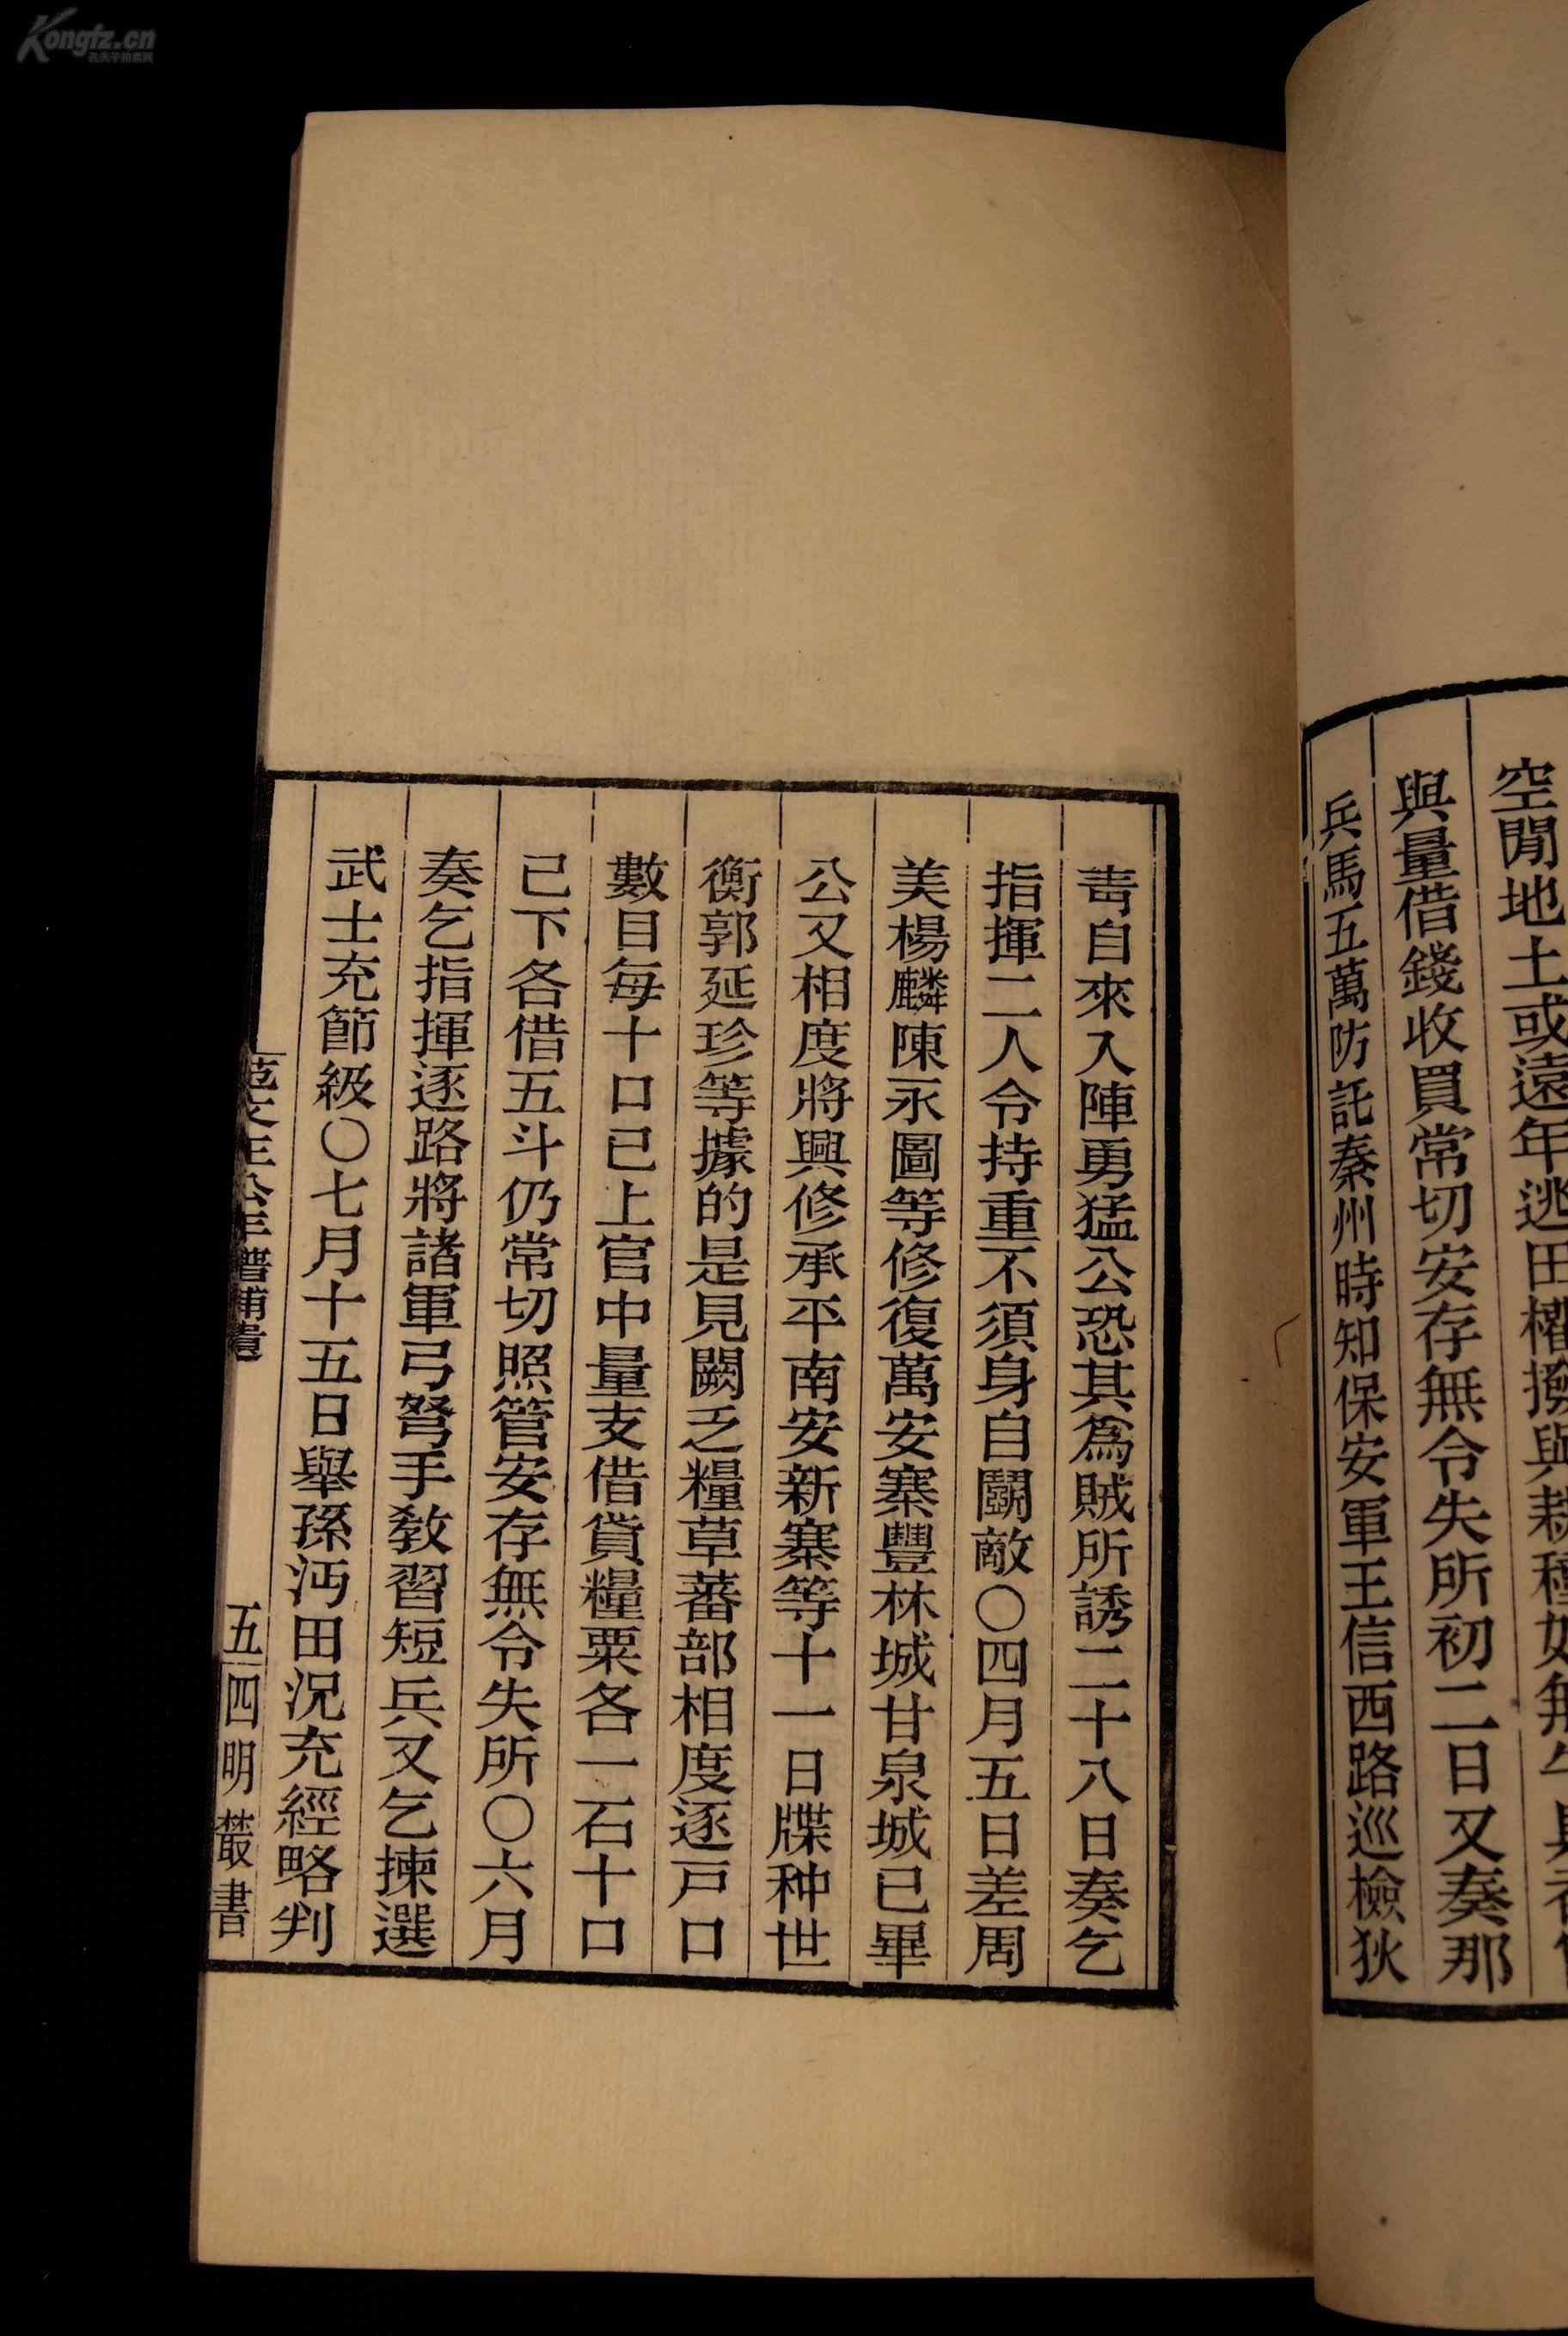 Kongfz.cn
孔夫子拍卖网
空閒地土或遠年逃田權撥與耕種如無牛具者
與量借錢收買常切安存無令失所初二日又奏那
兵馬五萬防託秦州時知保安軍王信西路巡檢狄
青自來入陣勇猛公恐其爲賊所誘二十八日奏乞
指揮二人令持重不須身自鬭敵〇四月五日差周
美楊麟陳永圖等修復萬安寨豐林城甘泉城已畢
公又相度將興修承平南安新寨等十一日牒种世
衡郭延珍等據的是見闕乏糧草蕃部相度逐戸口
數目每十口已上官中量支借貸糧粟各一石十口
已下各借五斗仍常切照管安存無令失所〇六月
奏乞指揮逐路將諸軍弓弩手教習短兵又乞揀選
武士充節級〇七月十五日舉孫沔田況充經略判
范文正公年譜補遺
五
四明叢書